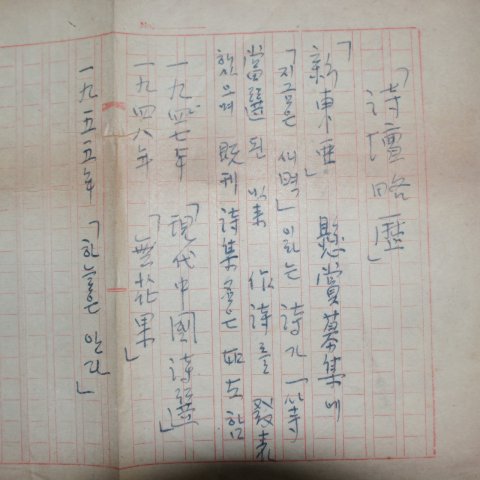 「詩壇略歷」
「新東亞」 懸賞募集에
「지금은 새벽」이라는 詩가 一等
當選된 以来 作詩를 發表
했으며 既刊詩集은 如左함
一九四七年 「現代中國詩選」
一九四八年 「無花果」
一九五五年 「하늘은 안다」